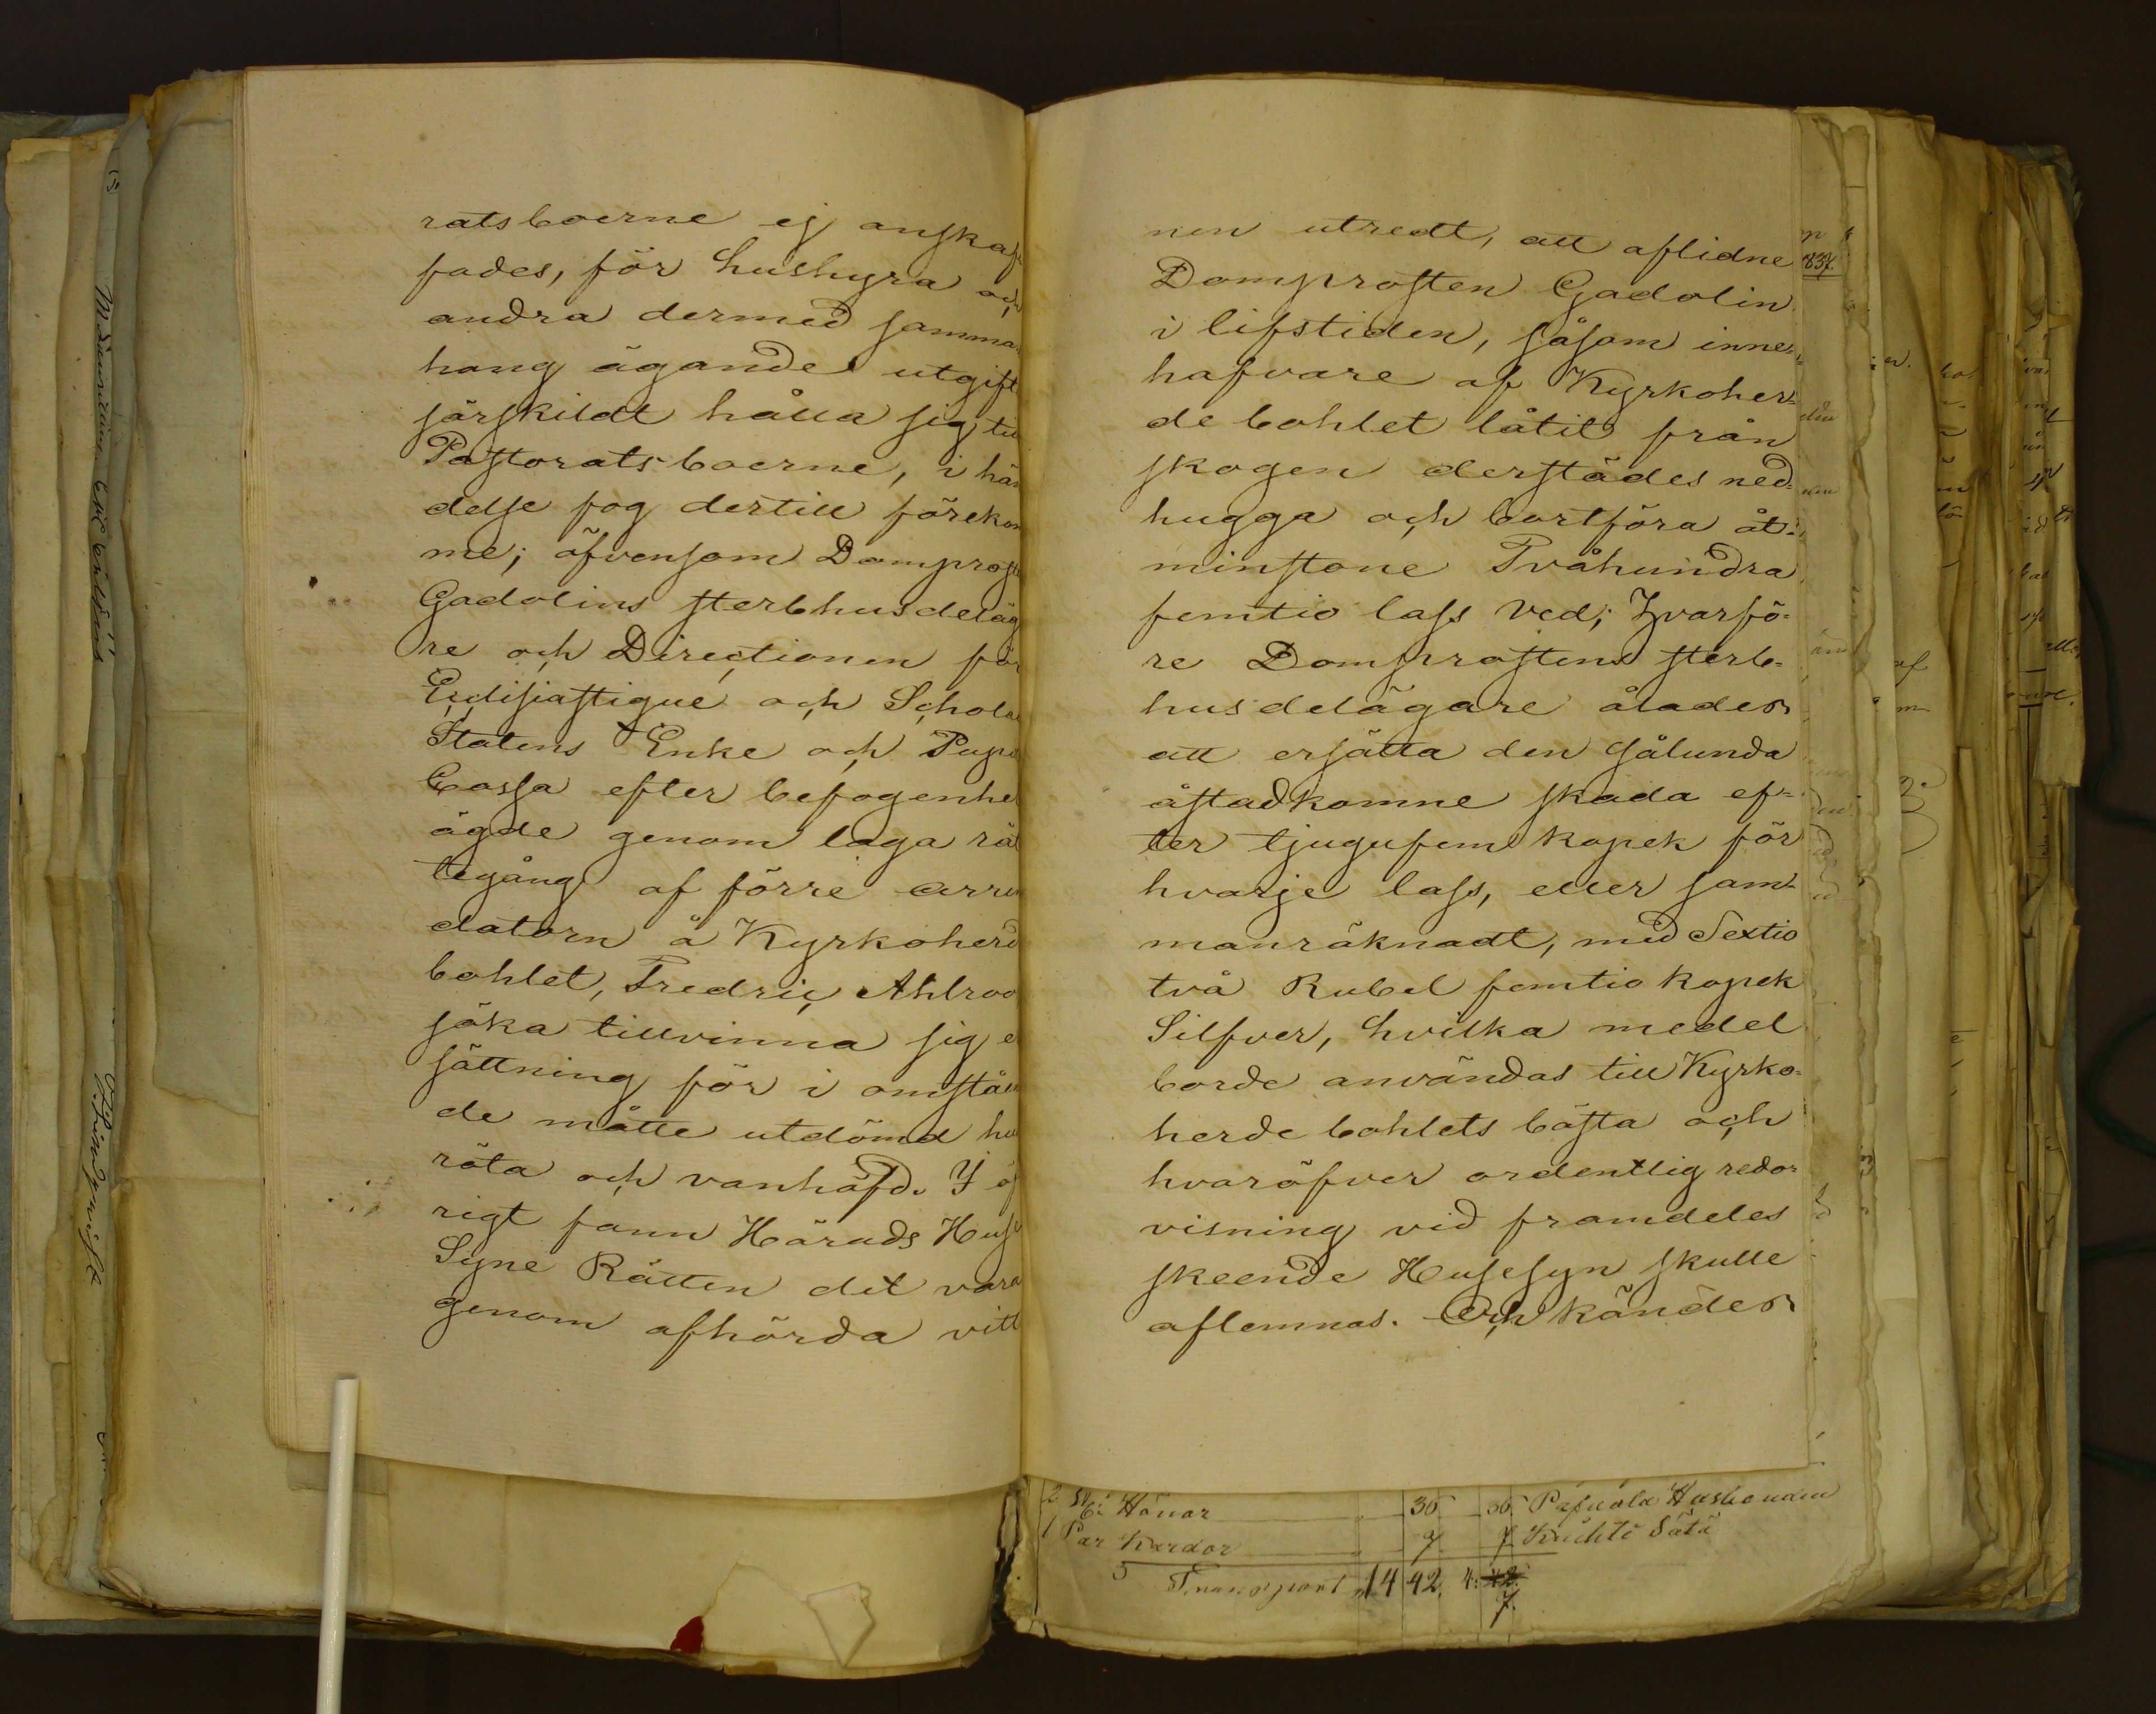 ratsboerne ej anskaf
fades, för hushyra och
andra dermed samman
hang ägande utgift
särskildt hålla sig till
Pastoratsboerne, i hän
delse fog dertill förekom
me; äfvensom Domproste
Gadolins sterbhusdeläg
re och Directionen för
Ecclisiastique och Schola
Statens Enke och Pupil
Cassa efter befogenhet
ägde genom laga rät
tegång af förre arren
datorn å Kyrkoherd
bohlet, Fredric Ahlroo
söka tillvinna sig e
sättning för i omstån
de måtte utdömd hu
röta och vanhäfd. I öf
rigt fann Härads Huse
Syne Rätten det vara
genom afhörda vitt
nen utredt, att aflidne
Domprosten Gadolin
i lifstiden, såsom inne-
hafvare af Kyrkoher-
de bohlet låtit från
skogen derstädes ned-
hugga och bortföra åt-
minstone Tvåhundra
femtio lass Ved; Hvarfö-
re Domprostens sterb-
husdelägare ålades
att ersätta den sålunda
åstadkomne skada ef-
ter tjugufem kopek för
hvarje lass, eller sam-
manräknadt, med Sextio
två Rubel femtio kopek
Silfver, hvilka medel
borde användas till Kyrko-
herde bohlets bästa och
hvaröfver ordentlig redo-
visning vid framdeles
skeende Husesyn skulle
aflemnas. Och kändes
837.
2 St: Hönor 30 30
1 Par Kardor 7 7
Transport 14 42. 4: 42.
7.